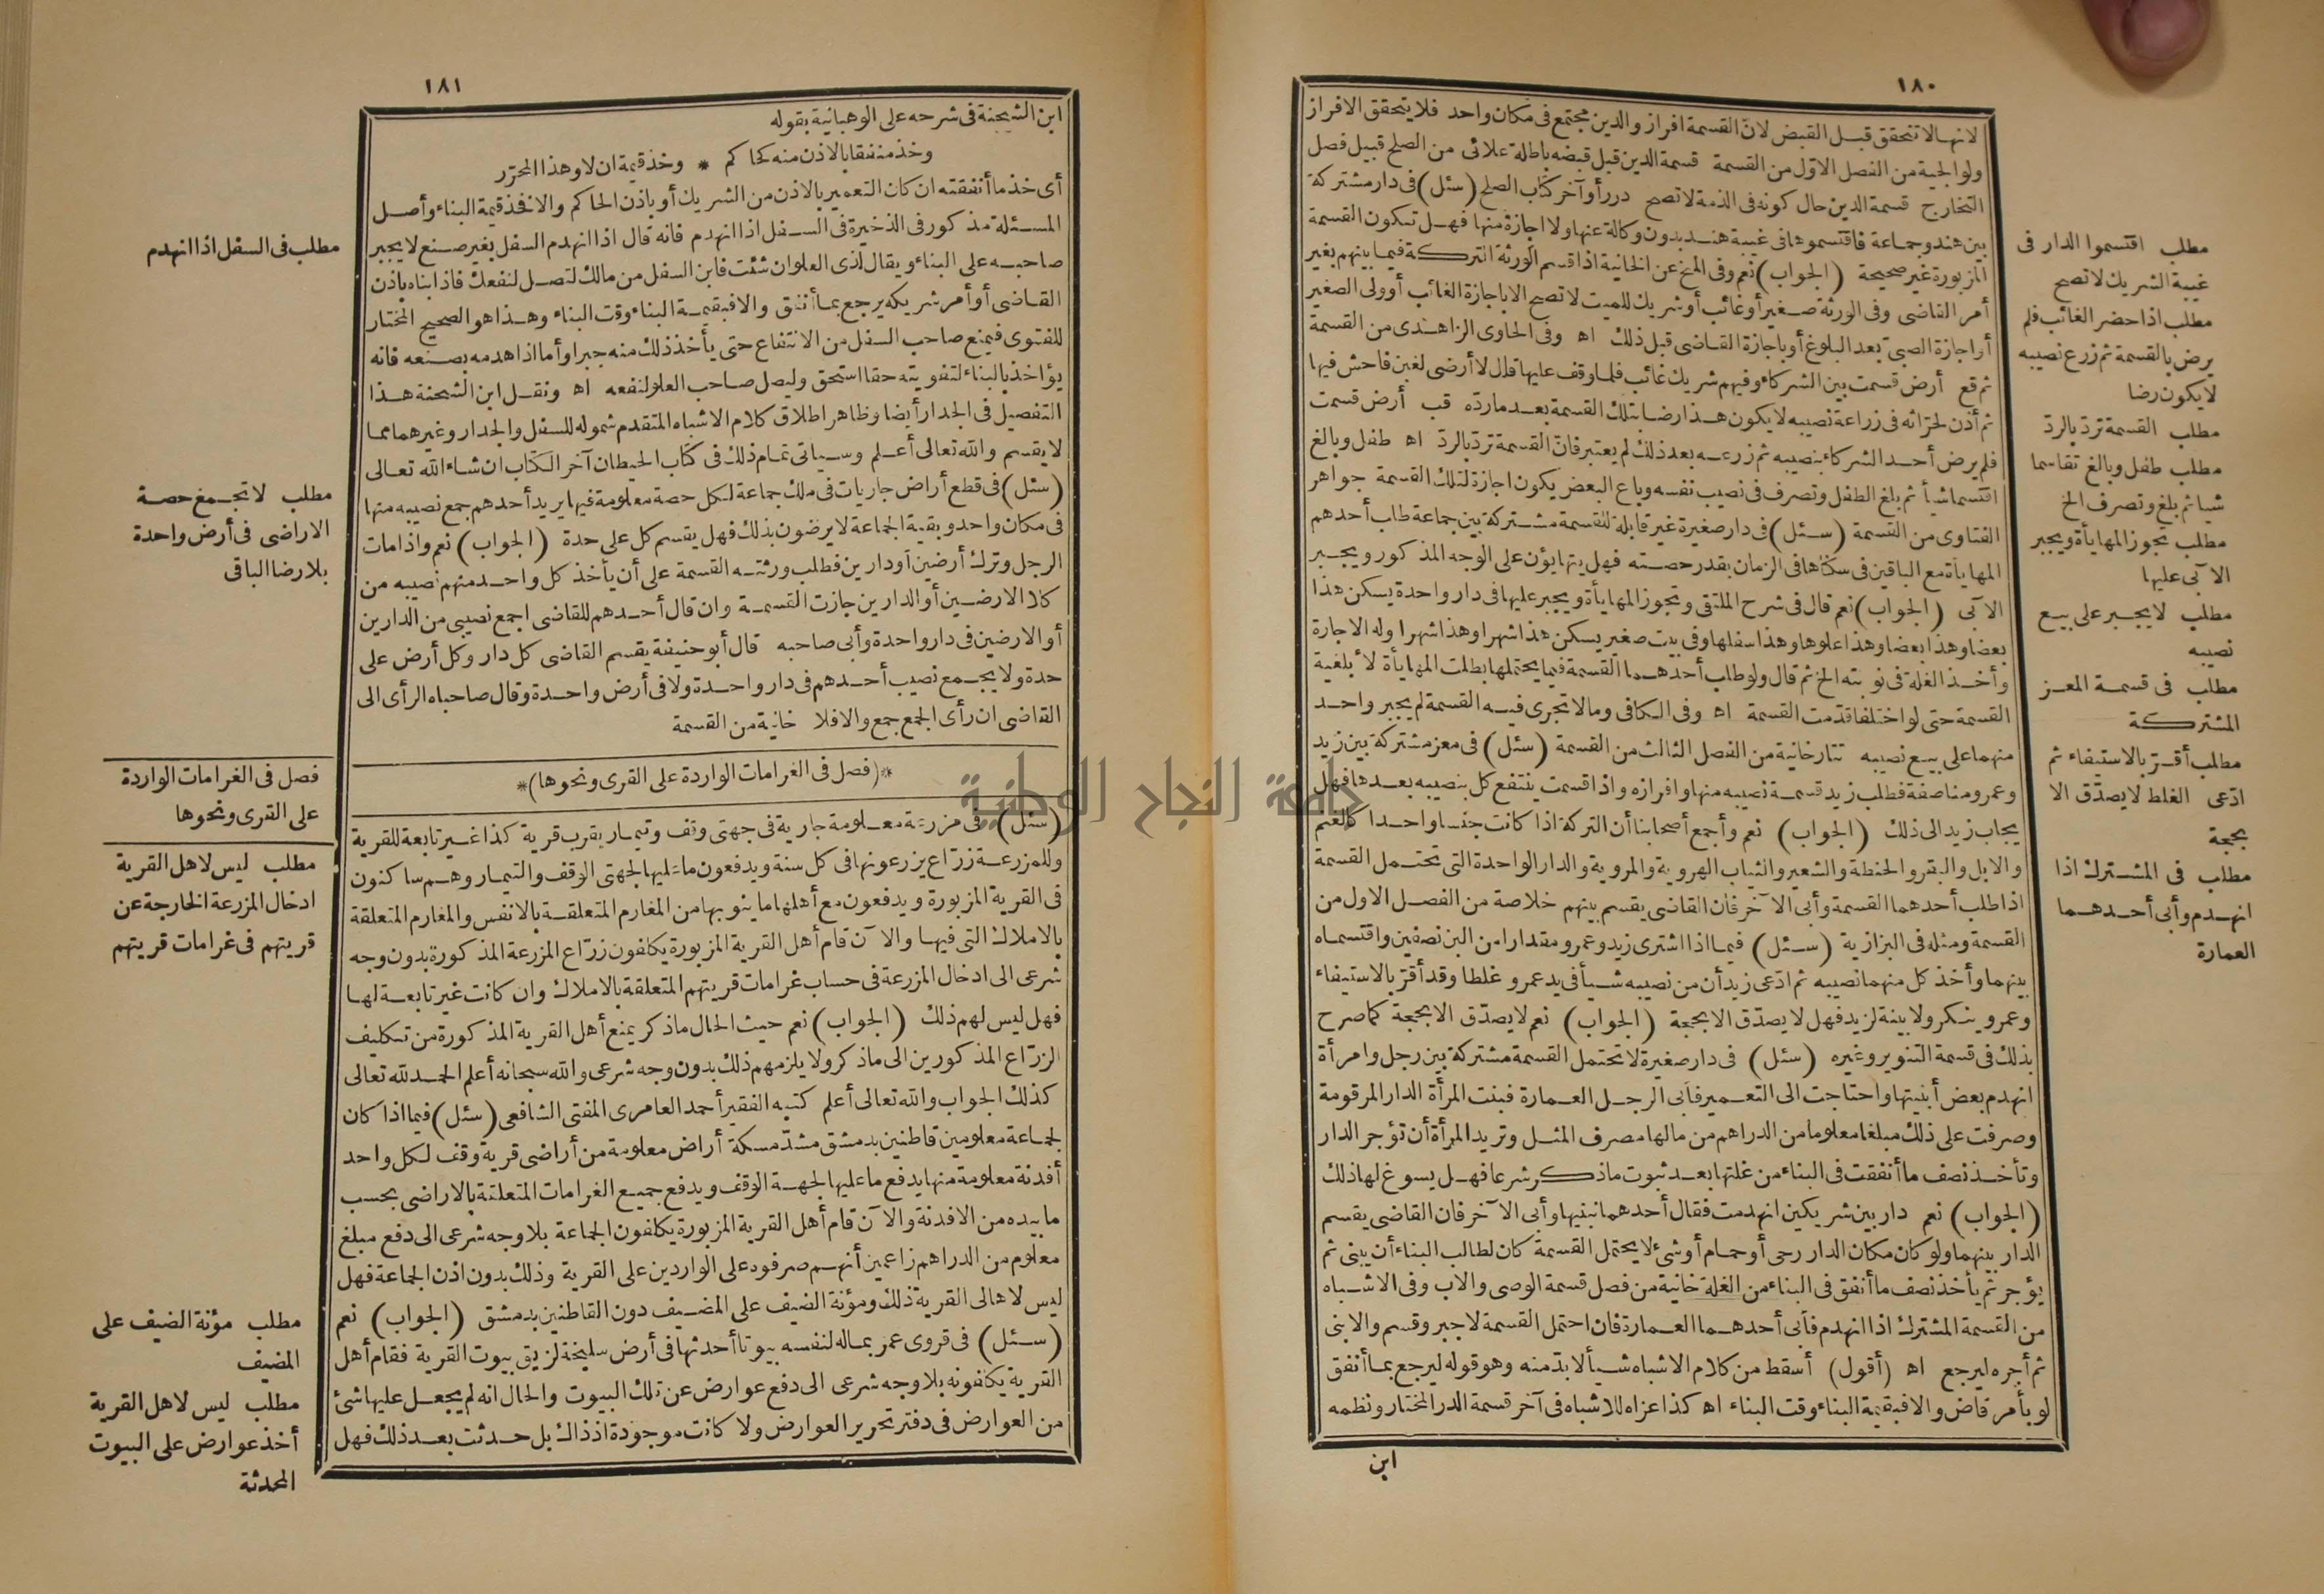 ١٨٠
لانها لا تتحقق قبل القبض لان القسمة افراز والدين مجتمع فى مكان واحد فلا يتحقق الافراز
ولوالجية من الفصل الاول من القسمة قسمة الدين قبل قبضه باطلة علائى من الصلح قبيل فصل
التخارج قسمة الدين حال كونه فى الذمة لا تصح درر أوآخر كتاب الصلح (سئل) فى دار مشتركة
بين هند وجماعة فاقتسموها فى غيبة هند بدون وكالة عنها ولا اجازة منها فهل تكون القسمة
المزبورة غير صحيحة (الجواب) نعم وفى المنح عن الخانية اذا قسم الورثة التركة فيما بينهم بغير
أمر القاضى وفى الورثة صغير أو غائب أو شريك للميت لا تصح الا باجازة الغائب أو ولى الصغير
أو اجازة الصبى بعد البلوغ أو باجازة القاضى قبل ذلك اه وفى الحاوى الزاهدى من القسمة
ثم قع أرض قسمت بين الشركاء وفيهم شريك غائب فلما وقف عليها قال لا أرضى لغبن فاحش فيها
ثم أذن لحراثه فى زراعة نصيبه لا يكون هذا رضا بتلك القسمة بعد ما ردّه قب أرض قسمت
فلم يرض أحد الشركاء بنصيبه ثم زرعه بعد ذلك لم يعتبر فان القسمة تردّ بالردّ اه طفل وبالغ
اقتسما شيأ ثم بلغ الطفل وتصرف فى نصيب نفسه وباع البعض يكون اجازة لتلك القسمة جواهر
الفتاوى من القسمة (سئل) فى دار صغيرة غير قابلة للقسمة مشتركة بين جماعة طلب أحدهم
المهايأة مع الباقين فى سكناها فى الزمان بقدر حصته فهل يتهايؤن على الوجه المذكور ويجبر
الآبى (الجواب) نعم قال فى شرح الملتقى وتجوز المهايأة ويجبر عليها فى دار واحدة يسكن هذا
بعضا وهذا بعضا وهذا علوها وهذا سفلها وفى بيت صغير يسكن هذا شهرا وهذا شهرا وله الاجارة
وأخذ الغلة فى نوبته الخ ثم قال ولو طلب أحدهما القسمة فيما يحتملها بطلت المهايأة لأبلغية
القسمة حتى لو اختلفا قدّمت القسمة اه وفى الكافى وما لا تجرى فيه القسمة لم يجبر واحد
منهما على بيع نصيبه تتارخانية من الفصل الثالث من القسمة (سئل) فى معز مشتركة بين زيد
وعمرو مناصفة فطلب زيد قسمة نصيبه منها وافرازه واذا قسمت ينتفع كل بنصيبه بعدها فهل
يجاب زيد الى ذلك (الجواب) نعم وأجمع أصحابنا أن التركة اذا كانت جنسا واحدا كالغنم
والابل والبقر والحنطة والشعير والثياب الهروية والمروية والدار الواحدة التى تحتمل القسمة
اذا طلب أحدهما القسمة وأبى الآخر فان القاضى يقسم بينهم خلاصة من الفصل الاول من
القسمة ومثله فى البزازية (سئل) فيما اذا اشترى زيد وعمرو مقدارا من البن نصفين واقتسماه
بينهما وأخذ كل منهما نصيبه ثم ادّعى زيد أن من نصيبه شيأ فى يد عمرو غلطا وقد أقرّ بالاستيفاء
وعمرو ينكر ولا بينة لزيد فهل لا يصدّق الا بحجة (الجواب) نعم لا يصدّق الا بحجة كما صرح
بذلك فى قسمة التنوير وغيره (سئل) فى دار صغيرة لا تحتمل القسمة مشتركة بين رجل وامرأة
انهدم بعض أبنيتها واحتاجت الى التعمير فأبى الرجل العمارة فبنت المرأة الدار المرقومة
وصرفت على ذلك مبلغا معلوما من الدراهم من مالها مصرف المثل وتريد المرأة أن تؤجر الدار
وتأخذ نصف ما أنفقت فى البناء من غلتها بعد ثبوت ما ذكر شرعا فهل يسوغ لها ذلك
(الجواب) نعم دار بين شريكين انهدمت فقال أحدهما نبنيها وأبى الآخر فان القاضى يقسم
الدار بينهما ولو كان مكان الدار رحى أو حمام أو شئ لا يحتمل القسمة كان لطالب البناء أن يبنى ثم
يؤجر ثم يأخذ نصف ما أنفق فى البناء من الغلة خانية من فصل قسمة الوصى والاب وفى الاشباه
من القسمة المشترك اذا انهدم فأبى أحدهما العمارة فان احتمل القسمة لا جبر وقسم والا بنى
ثم أجره ليرجع اه (أقول) أسقط من كلام الاشباه شيأ لا بدّ منه وهو قوله ليرجع بما أنفق
لو بأمر قاض والا فبقيمة البناء وقت البناء اه كذا عزاه للاشباه فى آخر قسمة الدر المختار ونظمه
ابن
مطلب اقتسموا الدار فى
غيبة الشريك لا تصح
مطلب اذا حضر الغائب فلم
يرض بالقسمة ثم زرع نصيبه
لا يكون رضا
مطلب القسمة تردّ بالردّ
مطلب طفل وبالغ تقاسما
شيأ ثم بلغ وتصرف الخ
مطلب تجوز المهايأة ويجبر
الآبى عليها
مطلب لا يجبر على بيع
نصيبه
مطلب فى قسمة المعز
المشتركة
مطلب أقرّ بالاستيفاء ثم
ادّعى الغلط لا يصدّق الا
بحجة
مطلب فى المشترك اذا
انهدم وأبى أحدهما
العمارة
١٨١
ابن الشحنة فى شرحه على الوهبانية بقوله
وخذ منفقا بالاذن منه كحاكم * وخذ قيمة ان لا وهذا المحرّر
أى خذ ما أنفقته ان كان التعمير بالاذن من الشريك أو باذن الحاكم والا فخذ قيمة البناء وأصل
المسئلة مذكور فى الذخيرة فى السفل اذا انهدم فانه قال اذا انهدم السفل بغير صنع لا يجبر
صاحبه على البناء ويقال لذى العلو ان شئت فابن السفل من مالك لتصل لنفعك فاذا بناه باذن
القاضى أو أمر شريكه يرجع بما أنفق والا فبقيمة البناء وقت البناء وهذا هو الصحيح المختار
للفتوى فيمنع صاحب السفل من الانتفاع حتى يأخذ ذلك منه جبرا وأما اذا هدمه بصنعه فانه
يؤاخذ بالبناء لتفويته حقا استحق وليصل صاحب العلو لنفعه اه ونقل ابن الشحنة هذا
التفصيل فى الجدار أيضا وظاهر اطلاق كلام الاشباه المتقدم شموله للسفل والجدار وغيرهما مما
لا يقسم والله تعالى أعلم وسيأتى تمام ذلك فى كتاب الحيطان آخر الكتاب ان شاء الله تعالى
(سئل) فى قطع أراض جاريات فى ملك جماعة لكل حصة معلومة فيها يريد أحدهم جمع نصيبه منها
فى مكان واحد وبقية الجماعة لا يرضون بذلك فهل يقسم كل على حدة (الجواب) نعم واذا مات
الرجل وترك أرضين أو دارين فطلب ورثته القسمة على أن يأخذ كل واحد منهم نصيبه من
كلا الارضين أو الدارين جازت القسمة وان قال أحدهم للقاضى اجمع نصيبى من الدارين
أو الارضين فى دار واحدة وأبى صاحبه قال أبو حنيفة يقسم القاضى كل دار وكل أرض على
حدة ولا يجمع نصيب أحدهم فى دار واحدة ولا فى أرض واحدة وقال صاحباه الرأى الى
القاضى ان رأى الجمع جمع والا فلا خانية من القسمة
*(فصل فى الغرامات الواردة على القرى ونحوها)*
(سئل) فى مزرعة معلومة جارية فى جهتى وقف وتيمار بقرب قرية كذا غير تابعة للقرية
وللمزرعة زرّاع يزرعونها فى كل سنة ويدفعون ما عليها لجهتى الوقف والتيمار وهم ساكنون
فى القرية المزبورة ويدفعون مع أهلها ما ينوبها من المغارم المتعلقة بالانفس والمغارم المتعلقة
بالاملاك التى فيها والآن قام أهل القرية المزبورة يكلفون زرّاع المزرعة المذكورة بدون وجه
شرعى الى ادخال المزرعة فى حساب غرامات قريتهم المتعلقة بالاملاك وان كانت غير تابعة لها
فهل ليس لهم ذلك (الجواب) نعم حيث الحال ما ذكر يمنع أهل القرية المذكورة من تكليف
الزرّاع المذكورين الى ما ذكر ولا يلزمهم ذلك بدون وجه شرعى والله سبحانه أعلم الحمد لله تعالى
كذلك الجواب والله تعالى أعلم كتبه الفقير أحمد العامرى المفتى الشافعى (سئل) فيما اذا كان
لجماعة معلومين قاطنين بدمشق مشدّ مسكة أراض معلومة من أراضى قرية وقف لكل واحد
أفدنة معلومة منها يدفع ما عليها لجهة الوقف ويدفع جميع الغرامات المتعلقة بالاراضى بحسب
ما بيده من الافدنة والآن قام أهل القرية المزبورة يكلفون الجماعة بلا وجه شرعى الى دفع مبلغ
معلوم من الدراهم زاعمين أنهم صرفوه على الواردين على القرية وذلك بدون اذن الجماعة فهل
ليس لاهالى القرية ذلك ومؤنة الضيف على المضيف دون القاطنين بدمشق (الجواب) نعم
(سئل) فى قروى عمر بماله لنفسه بيوتا أحدثها فى أرض سليخة لزيق بيوت القرية فقام أهل
القرية يكلفونه بلا وجه شرعى الى دفع عوارض عن تلك البيوت والحال انه لم يجعل عليها شئ
من العوارض فى دفتر تحرير العوارض ولا كانت موجودة اذ ذاك بل حدثت بعد ذلك فهل
مطلب فى السفل اذا انهدم
مطلب لا تجمع حصة
الاراضى فى أرض واحدة
بلا رضا الباقى
فصل فى الغرامات الواردة
على القرى ونحوها
مطلب ليس لاهل القرية
ادخال المزرعة الخارجة عن
قريتهم فى غرامات قريتهم
مطلب مؤنة الضيف على
المضيف
مطلب ليس لاهل القرية
أخذ عوارض على البيوت
المحدثة
جامعة النجاح الوطنية